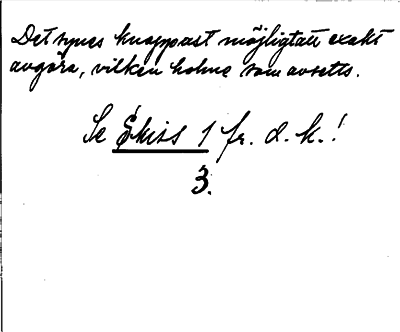 Det synes knappast möjligt att exakt
avgöra, vilken holme som avsetts.
Se Skiss 1 fr. d. k.!
3.